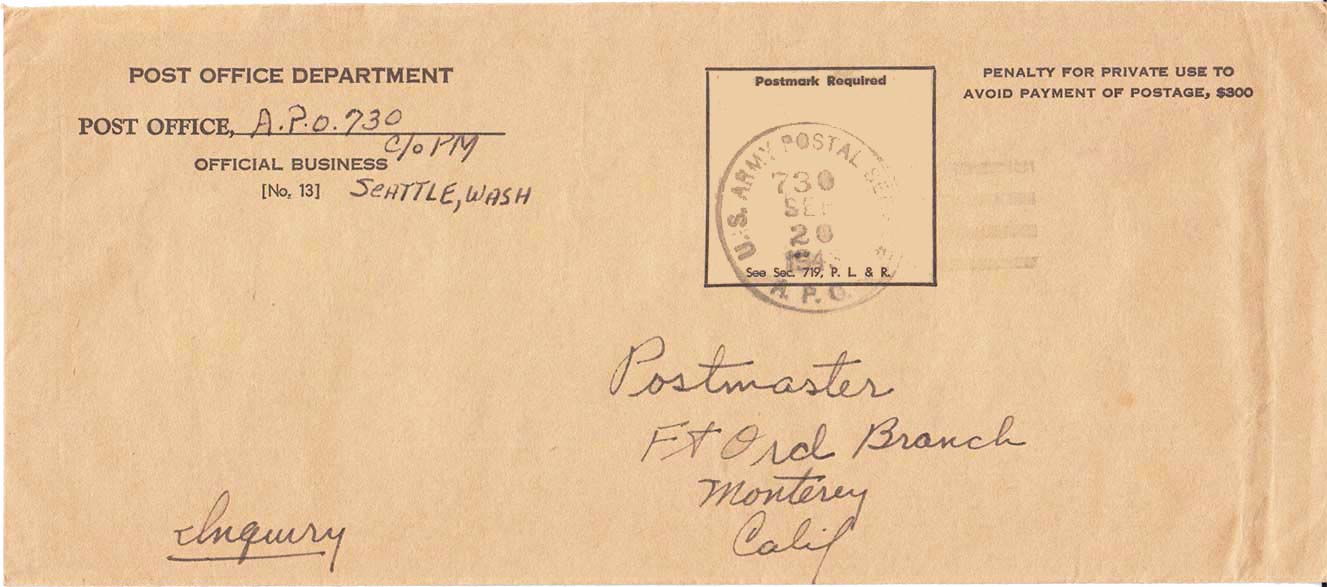 POST OFFICE DEPARTMENT
POST OFFICE, A.P.O. 730
c/o PM
OFFICIAL BUSINESS
[No. 13] SEATTLE, WASH
Postmark Required
U.S. ARMY POSTAL
730
SEP
20
See Sec. 719, P. L. & R.
A. P. O.
PENALTY FOR PRIVATE USE TO
AVOID PAYMENT OF POSTAGE, $300
Postmaster
Ft Ord Branch
Monterey
Calif
Inquiry